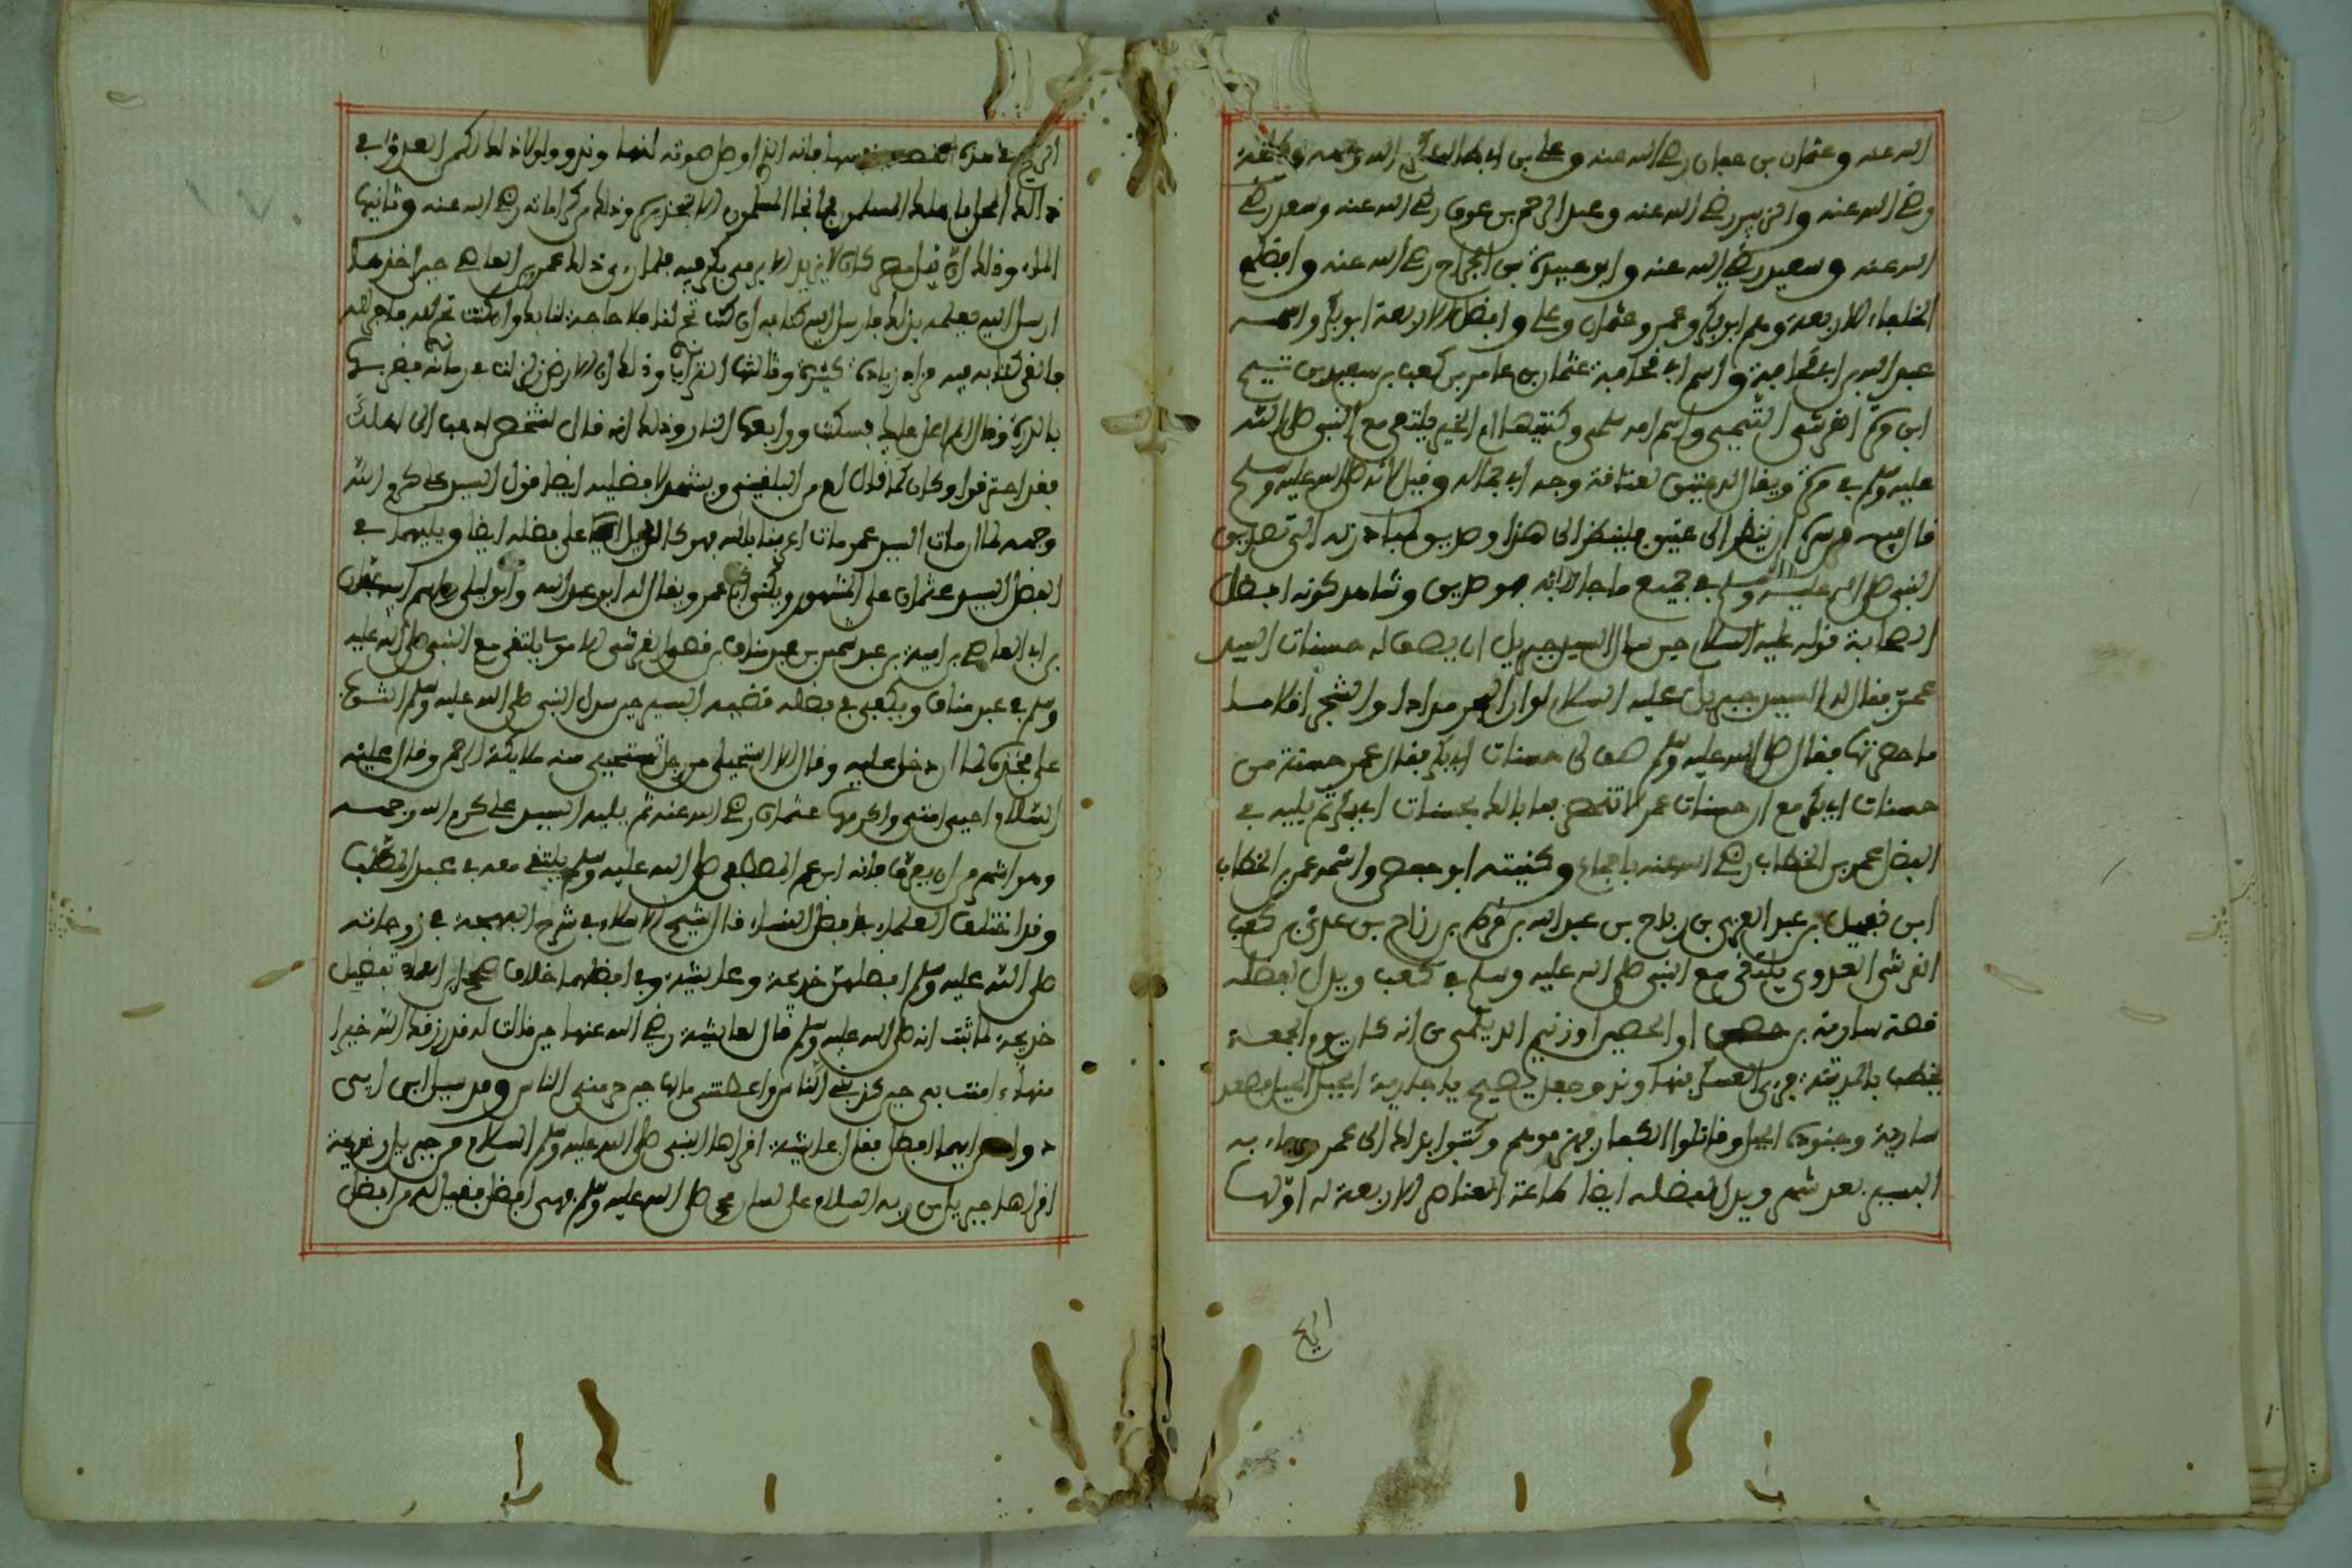 الله عنه وعثمان بن عفان رضي الله عنه وعلي بن ابي طالب كرم الله وجهه وطلحة
رضي الله عنه والزبير رضي الله عنه وعبد الرحمن بن عوف رضي الله عنه وسعد رضي
الله عنه وسعيد رضي الله عنه وابو عبيدة بن الجراح رضي الله عنه وافضلهم
الخلفاء الاربعة وهم ابو بكر وعمر وعثمان وعلي وافضل الاربعة ابو بكر واسمه
عبد الله بن ابي قحافة واسم ابي قحافة عثمان بن عامر بن كعب بن سعيد بن تيم
ابن مرة القرشي التيمي واسم امه سلمى وكنيتها ام الخير يلتقي مع النبي صلى الله
عليه وسلم في مرة ويقال له عتيق لعتاقة وجهه اي جماله وقيل لانه صلى الله عليه وسلم
قال فيه من سره ان ينظر الى عتيق فلينظر الى هذا وصديق لمبادرته الى تصديق
النبي صلى الله عليه وسلم في جميع ما جاء به فهو صديق وشاهد كونه افضل
الصحابة قوله عليه السلام حين سال السيد جبريل ان يصف له حسنات السيد
عمر فقال له السيد جبريل عليه السلام لو ان البحر مدادا والشجر اقلاما
ما حصرتها فقال صلى الله عليه وسلم صف لي حسنات ابي بكر فقال عمر حسنة من
حسنات ابي بكر مع ان حسنات عمر لا تنحصر فما بالك بحسنات ابي بكر ثم يليه في
الفضل عمر بن الخطاب رضي الله عنه باجماع وكنيته ابو حفص واسمه عمر بن الخطاب
ابن نفيل بن عبد العزى بن رباح بن عبد الله بن قرط بن رزاح بن عدي بن كعب
القرشي العدوي يلتقي مع النبي صلى الله عليه وسلم في كعب ويدل لفضله
قصة سارية بن او الحصين او زنيم الديلمي من انه كان يوم الجمعة
يخطب بالمدينة فرءى العسكر بنهاوند وجعل يصيح يا سارية الجبل الجبل فصعد
سارية وجنوده الجبل وقاتلوا الكفار فهزموهم وكتبوا بذلك الى عمر وجاء به
البشير بعد شهر ويدل لفضله ايضا طاعة العناصر الاربعة له اولها
الريح
الريح في هذه القصة فانه الذي اوصل صوته لنهاوند ولولا ذلك لكمن العدو في
ذالك المسلمون الا بتحذيرهم وذلك من كراماته رضي الله عنه وثانيها
الماء وذلك ان نيل مصر كان لا يزيد الا برمي بكر فيه فلما رءى ذلك عمرو بن العاصي حين اخذها
ارسل اليه يعلمه بذلك فارسل اليه كتابه ان كنت تجر لنفسك لا حاجة لنا بك وان كنت تجر لله فاجر لله
فالقى كتابه فيه فزاد زيادة كثيرة وثالثها التراب وذلك ان الارض زلزلت في زمانه فضربها
بالدرة وقال الم اعدل عليك فسكنت ورابعها النار وذلك انه قال لشخص اذهب الى اهلك
فقد احترقوا وكان كما قال ويشهد لافضليته ايضا قول السيد علي كرم الله
وجهه لما ان مات السيد عمر مات على فضله ايضا ويليهما في
الفضل السيد عثمان على المشهور ويكنى ابا عمرو ويقال له ابو عبد الله وابو ليلى واسم ابيه عفان
بن ابي العاصي بن امية بن عبد شمس بن عبد مناف بن قصي القرشي الاموي يلتقي مع النبي صلى الله عليه
وسلم في عبد مناف ويكفي في فضله قضية السيد حين سدل النبي صلى الله عليه وسلم الثوب
على فخذه لما ان دخل عليه وقال الا استحيي من رجل تستحيي منه ملائكة الرحمن وقال عليه
السلام احيى امتي واكرمها عثمان رضي الله عنه ثم يليه السيد علي كرم الله وجهه
وهو اشهر من ان يعرف فانه ابن عم المصطفى صلى الله عليه وسلم يلتقي معه في عبد المطلب
وقد اختلف العلماء في افضل النساء قال شيخ الاسلام في شرح البهجة في زوجاته
صلى الله عليه وسلم افضلهن خديجة وعائشة وفي افضلهما خلاف صحح ابن العماد تفضيل
خديجة لما ثبت انه صلى الله عليه وسلم قال لعائشة رضي الله عنها حين قالت له قد رزقك الله خيرا
منها امنت بي حين كذبني الناس واعطتني مالها حين حرمني الناس وقد سئل ابن ابي
داود ايهما افضل فقال عائشة اقراها النبي صلى الله عليه وسلم السلام من جبريل وخديجة
اقراها جبريل من ربه السلام على لسان محمد صلى الله عليه وسلم فهي افضل فقيل له من افضل